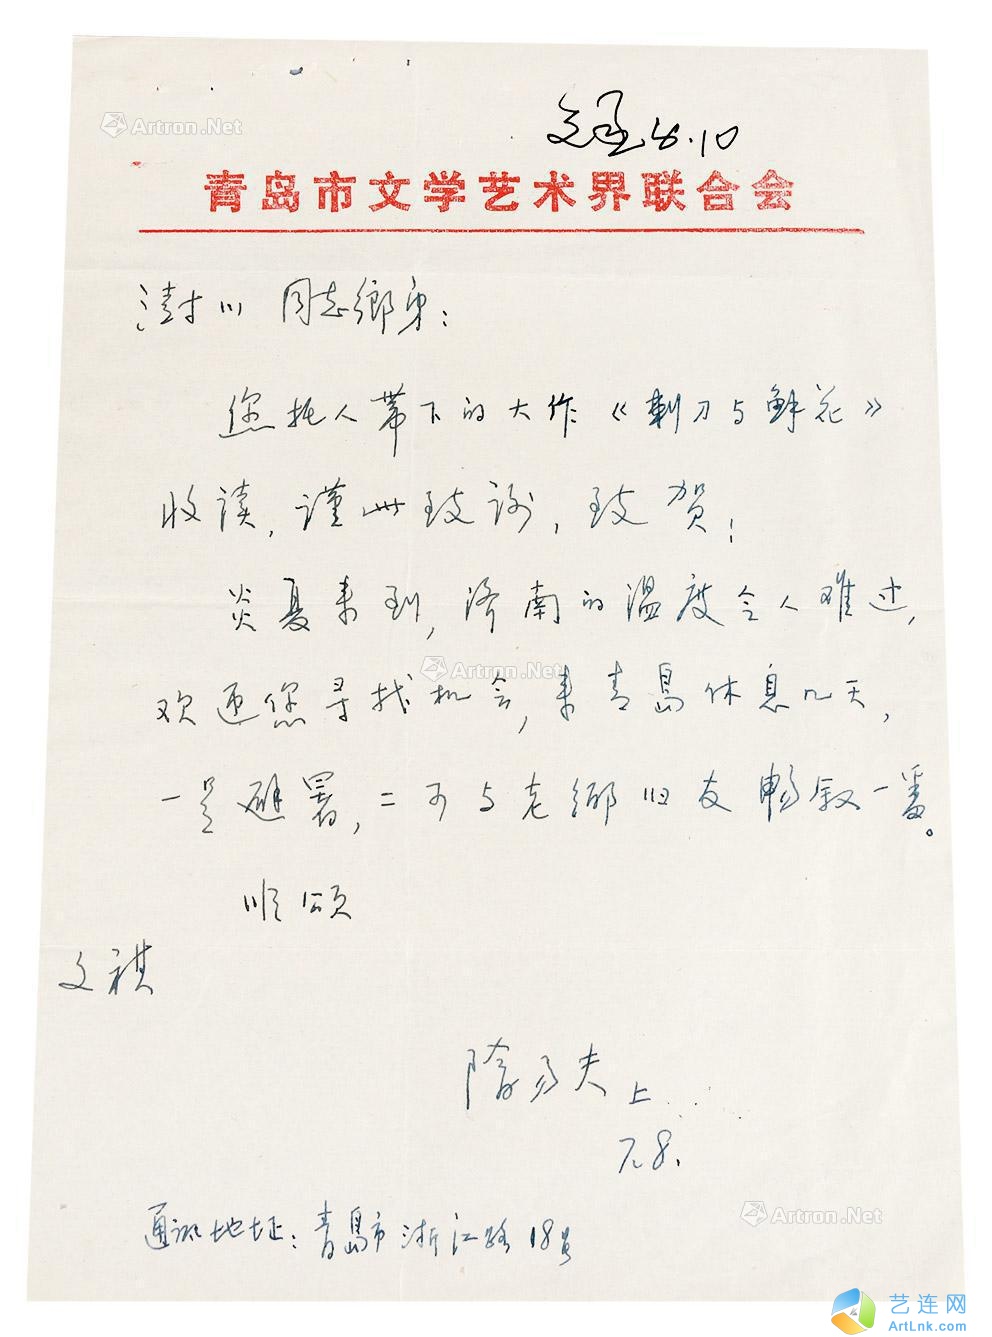 Artron.Net
8.10
青岛市文学艺术界联合会
澍川 同志鄉弟：
您托人带下的大作《刺刀与鲜花》
收读，谨此致谢，致贺！
炎夏来到，济南的温度令人难过，
欢迎您寻找机会，来青岛休息几天，
Artron.Net
一是避暑，二可与老鄉旧友畅叙一番。
顺颂
文祺
隋易夫 上
7.8.
Artron.Net
通讯地址：青岛市浙江路18号
艺连网
ArtLnk.com